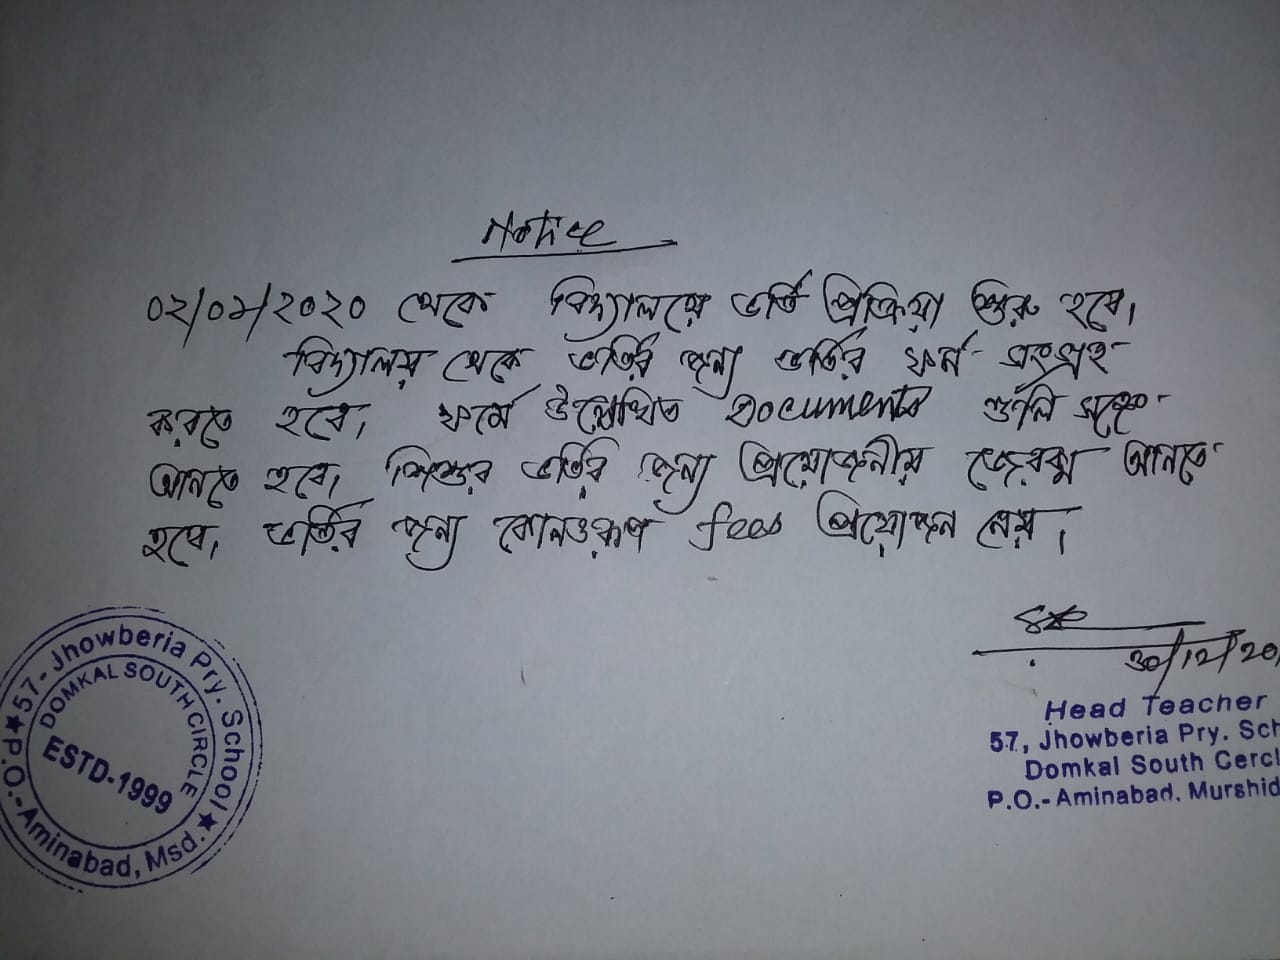 Notice
০২/০১/২০২০ থেকে বিদ্যালয়ে ভর্তি প্রক্রিয়া শুরু হবে।
বিদ্যালয় থেকে ভর্তির জন্য ভর্তির ফর্ম সংগ্রহ
করতে হবে। ফর্মে উল্লেখিত Documents গুলি সঙ্গে
আনতে হবে। শিশুর ভর্তির জন্য প্রয়োজনীয় জেরক্স আনতে
হবে। ভর্তির জন্য কোনওরূপ fees প্রয়োজন নেয়।
30/12/20
Head Teacher
57, Jhowberia Pry. Sch
Domkal South Cercl
P.O.- Aminabad, Murshid
57-Jhowberia Pry. School
DOMKAL SOUTH CIRCLE
ESTD-1999
P.O.-Aminabad, Msd.